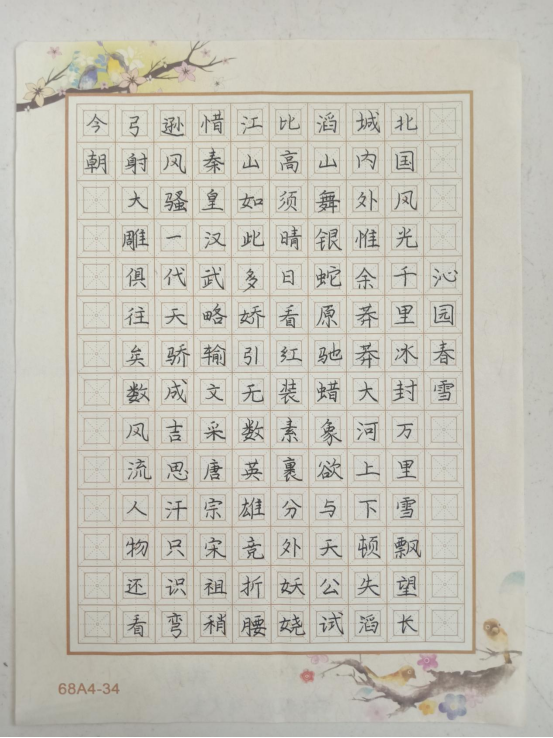 沁园春雪
北国风光千里冰封万里雪飘望长
城内外惟余莽莽大河上下顿失滔
滔山舞银蛇原驰蜡象欲与天公试
比高须晴日看红装素裹分外妖娆
江山如此多娇引无数英雄竞折腰
惜秦皇汉武略输文采唐宗宋祖稍
逊风骚一代天骄成吉思汗只识弯
弓射大雕俱往矣数风流人物还看
今朝
68A4-34